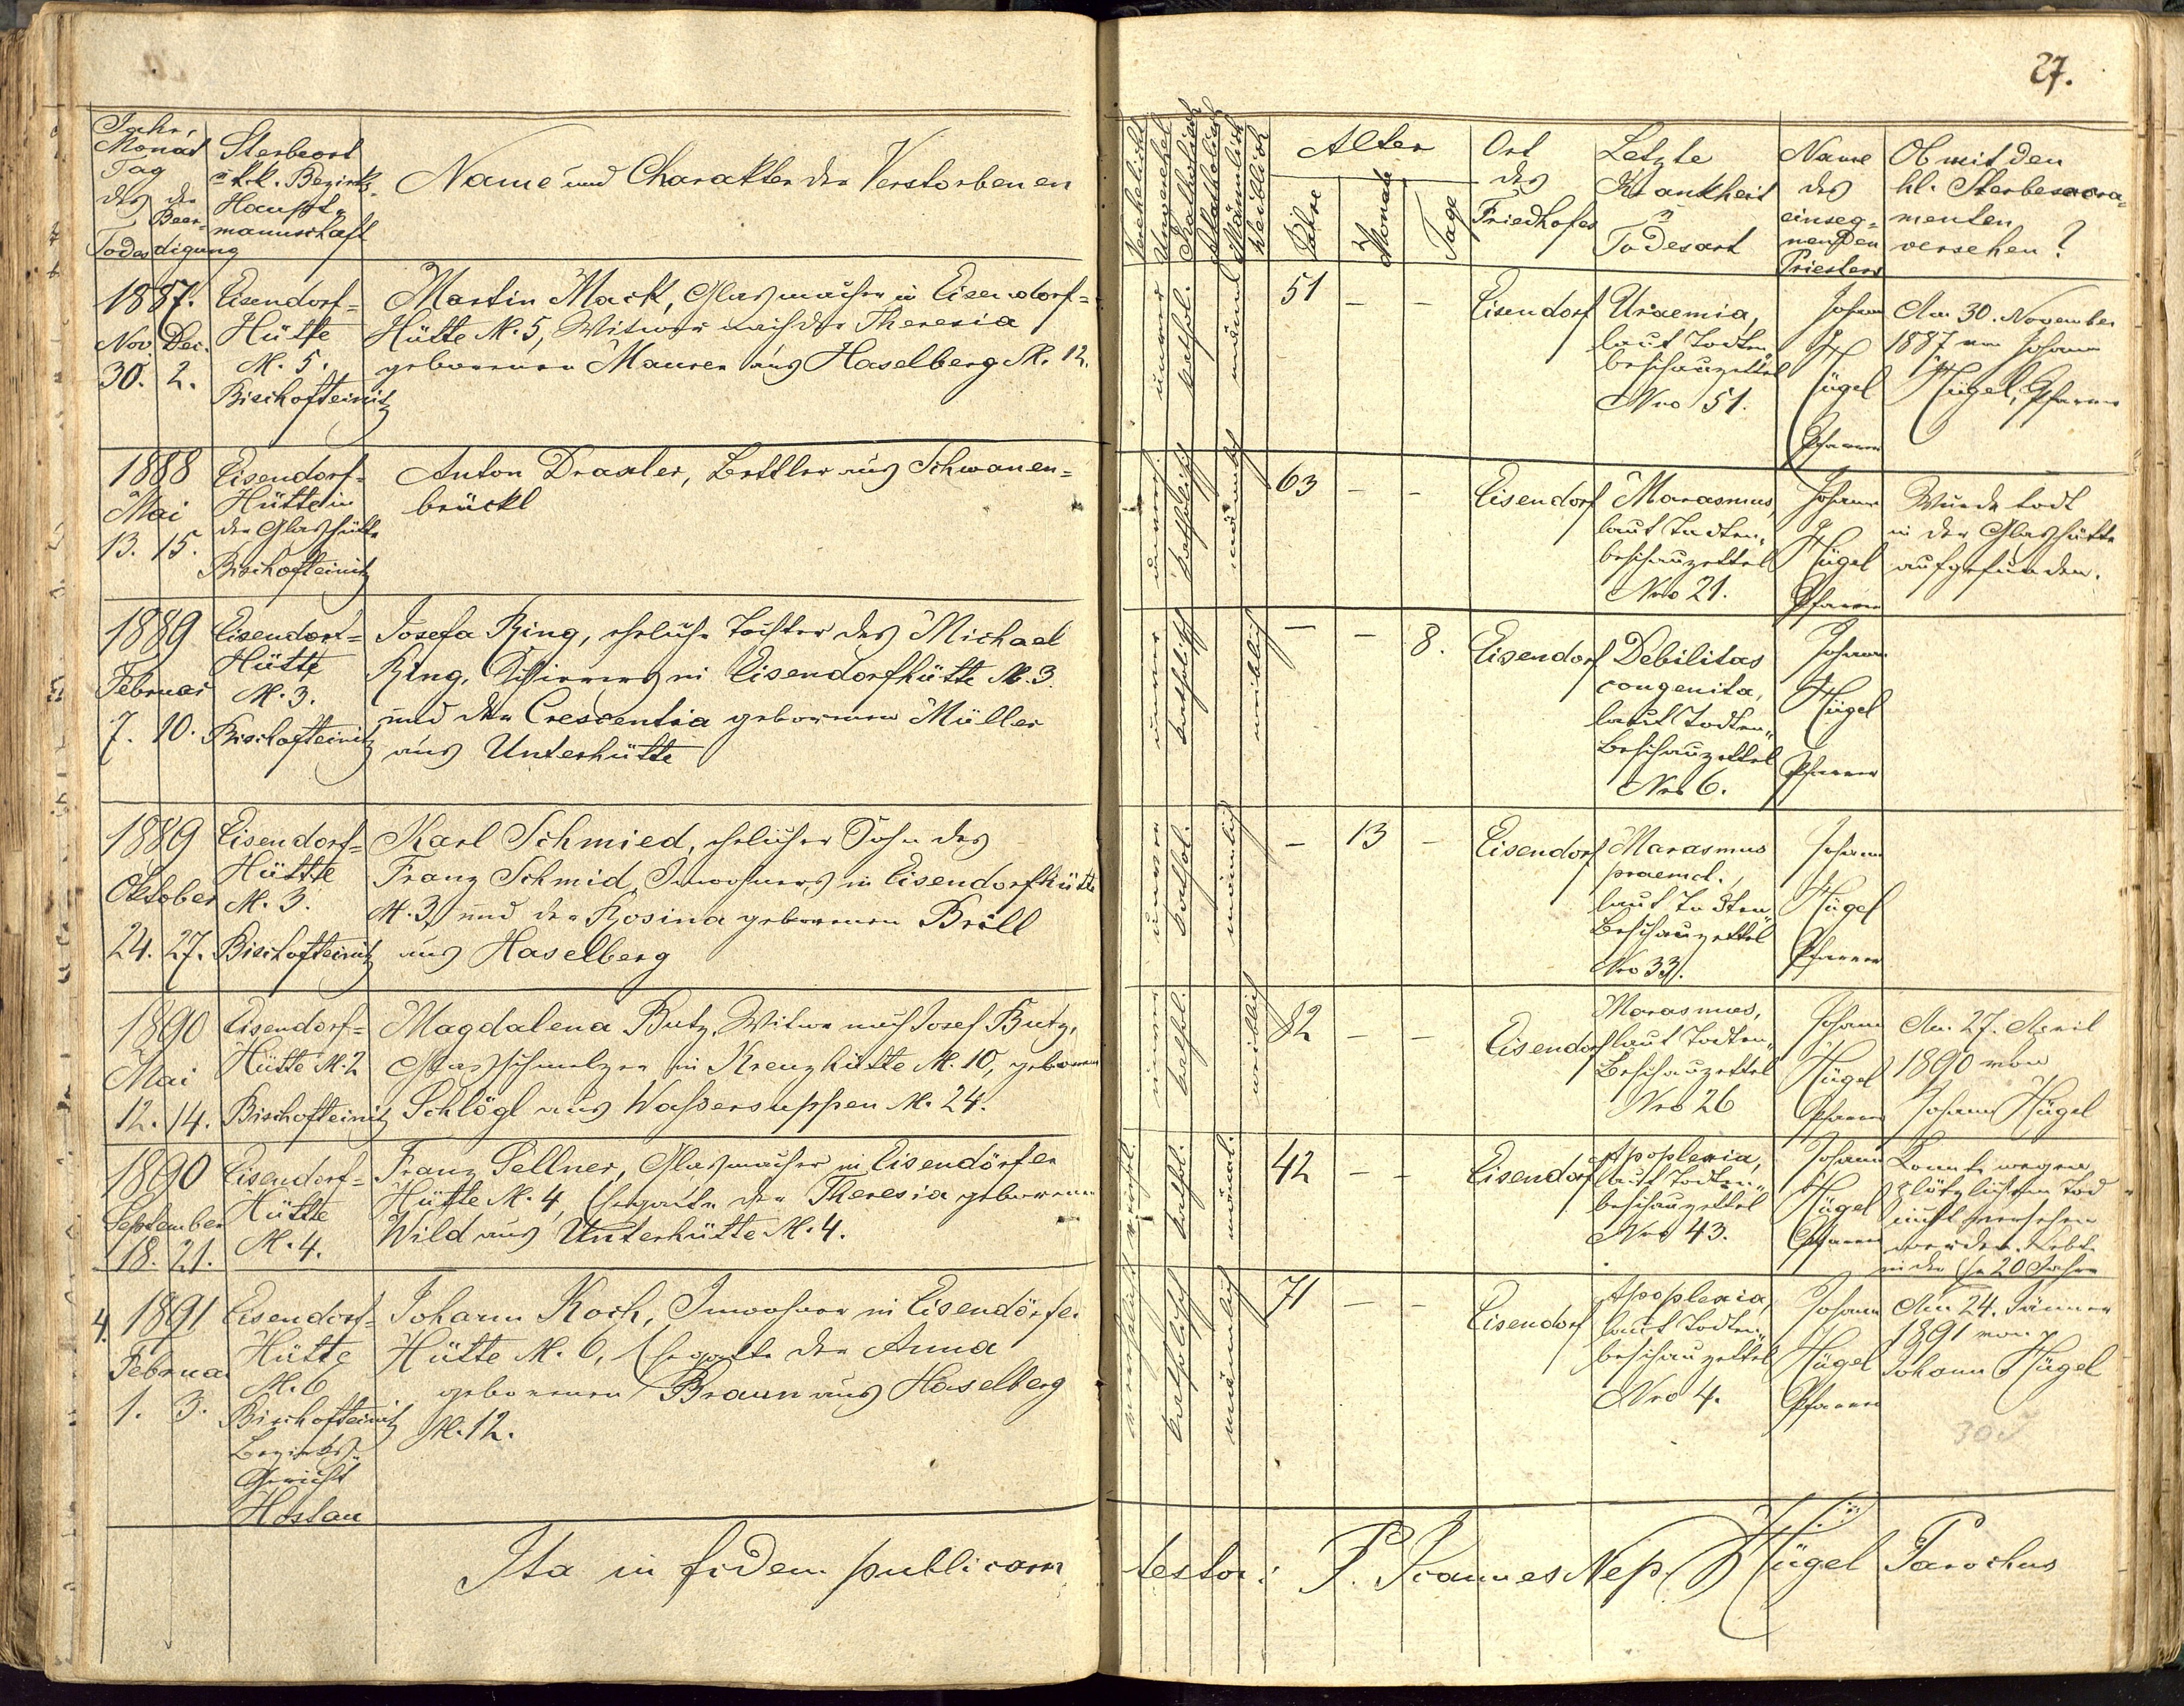 27.
Jahr,
Monat
Tag
des der
Beer-
Todes digung
Sterbeort
u k.k. Bezirks-
Haupt-
mannschaft
Name und Charakter der Verstorbenen
Verehelicht
Unverehel
Katholisch
Akatholisch
Männlich
Weiblich
Alter
Jahre
Monate
Tage
Ort
des
Friedhofes
Letzte
Krankheit
u
Todesart
Name
des
einseg-
nenden
Priesters
Ob mit den
hl. Sterbesacra-
menten
versehen?
1887.
Nov. Dec.
30. 2.
Eisendorf-
Hütte
N. 5.
Bischofteinitz
Martin Mack, Glasmacher in Eisendorf-
Hütte N. 5, Witwer nach der Theresia
geborenen Maurer aus Haselberg N. 12.
kathol.
51 – –
Eisendorf
Uraemia,
laut Todten-
beschauzettel
Nro 51.
Johann
Hügel
Pfarrer
Am 30. November
1887 von Johann
Hügel, Pfarrer
1888
Mai
13. 15.
Eisendorf-
Hütte in
der Glashütte
Bischofteinitz
Anton Draxler, Bettler aus Schwanen-
brückl
katholisch
männlich
63 – –
Eisendorf
Marasmus
laut Todten-
beschauzettel
Nro 21.
Johann
Hügel
Pfarrer
Wurde todt
in der Glashütte
aufgefunden.
1889
Februar
7. 10.
Eisendorf-
Hütte
N. 3.
Bischofteinitz
Josefa Ring, eheliche Tochter des Michael
Ring, Schürers in Eisendorfhütte N. 3.
und der Crescentia geborenen Müller
aus Unterhütte
katholisch
weiblich
– – 8.
Eisendorf
Debilitas
congenita,
laut Todten-
Beschauzettel
Nro 6.
Johann
Hügel
Pfarrer
1889
Oktober
24. 27.
Eisendorf-
Hütte
N. 3.
Bischofteinitz
Karl Schmied, ehelicher Sohn des
Franz Schmid, Inwohners in Eisendorfhütte
N. 3, und der Rosina geborenen Bröll
aus Haselberg
kathol.
männlich
– 13 –
Eisendorf
Marasmus
laut Todten
Beschauzettel
Nro 33.
Johann
Hügel
Pfarrer
1890
Mai
12. 14.
Eisendorf-
Hütte N. 2
Bischofteinitz
Magdalena Butz, Witwe nach Josef Butz,
Glasschmelzer in Kreuzhütte N. 10, geborene
Schlögl aus Waßersuppen N. 24.
kathol.
weiblich
82 – –
Eisendorf
Marasmus,
laut Todten-
Beschauzettel
Nro 26
Johann
Hügel
Pfarrer
Am 27. April
1890 von
Johann Hügel
1890
September
18. 21.
Eisendorf-
Hütte
N. 4.
Franz Sellner, Glasmacher in Eisendörfer
Hütte N. 4, Ehegatte der Theresia geborenen
Wild aus Unterhütte N. 4.
kathol.
männl.
42 – –
Eisendorf
Apoplexia,
laut Todten-
beschauzettel
Nro 43.
Johann
Hügel
Pfarrer
Konnte wegen
plötzlichem Tod
nicht versehen
werden. Lebte
in der Ehe 20 Jahre
4. 1891
Februar
1. 3.
Eisendorf-
Hütte
N. 6
Bischofteinitz
Bezirks-
Gericht
Hostau
Johann Koch, Inwohner in Eisendörfer
Hütte N. 6, Ehegatte der Anna
geborenen Braun aus Haselberg
N. 12.
katholisch
männlich
71 – –
Eisendorf
Apoplexia,
laut Todten-
beschauzettel
Nro 4.
Johann
Hügel
Pfarrer
Am 24. Jänner
1891 von
Johann Hügel
Ita in fidem publicam
testor: P. Joannes Nep. Hügel Parochus